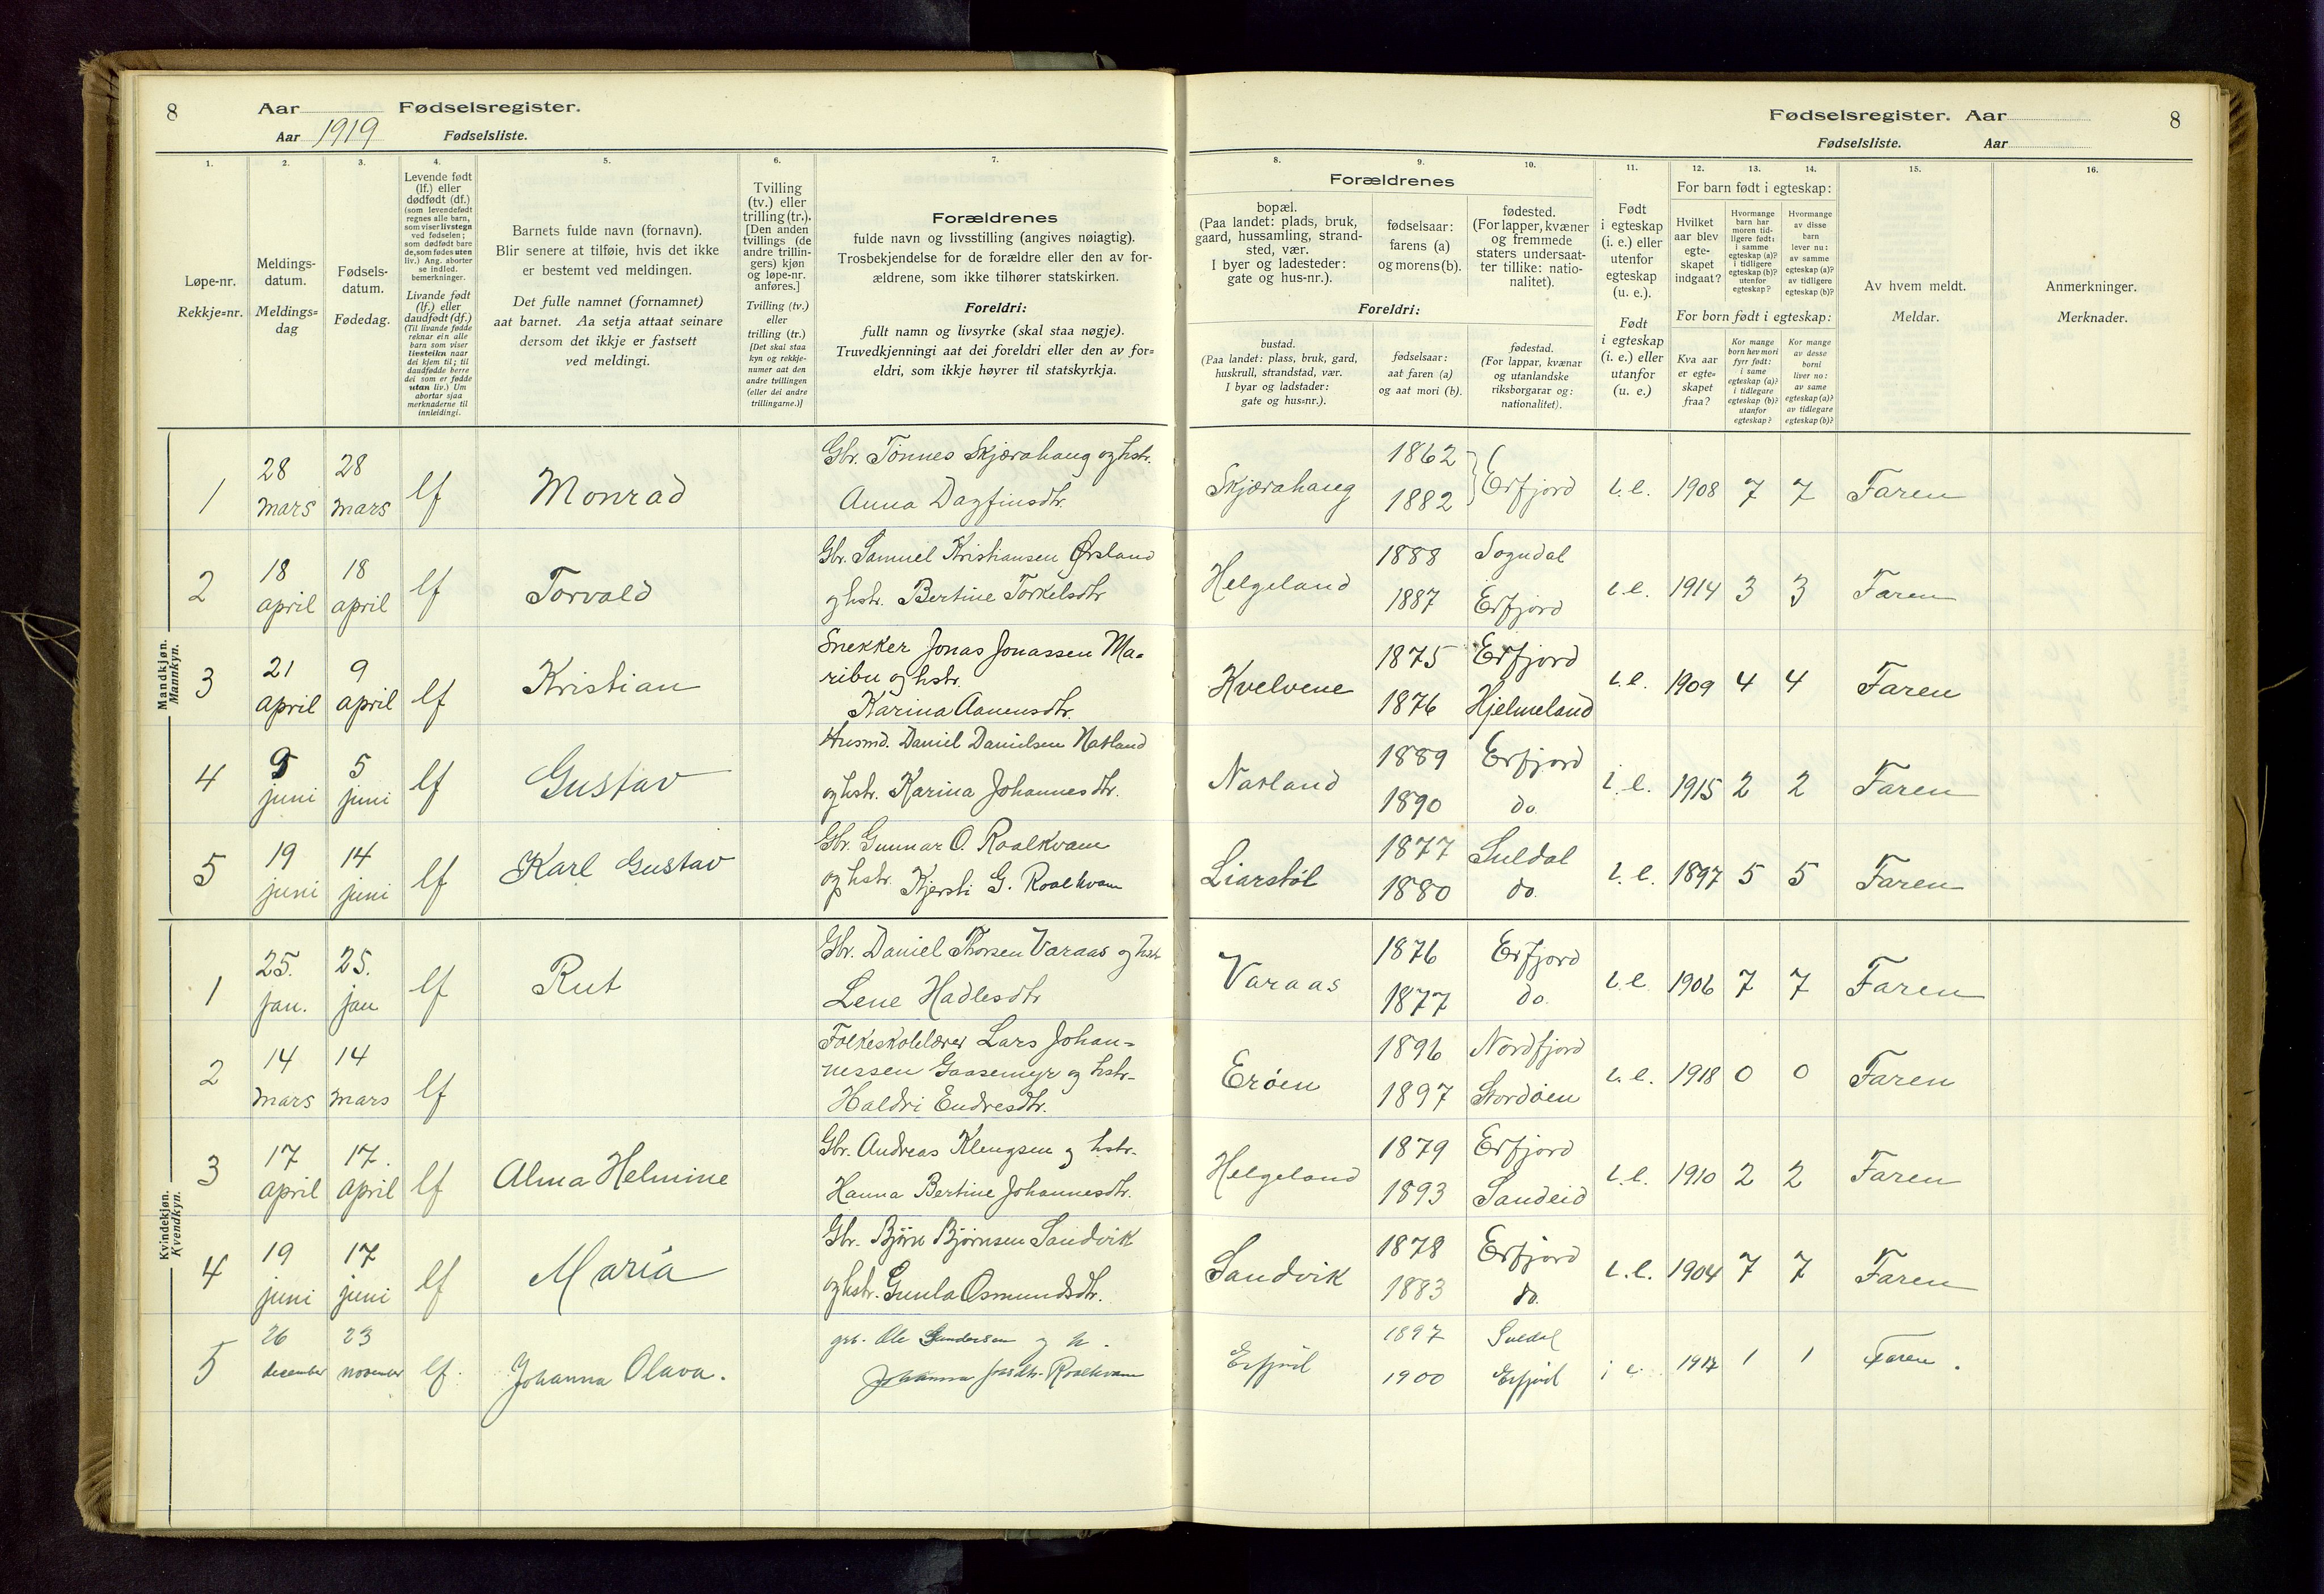 8 Aar Fødselsregister.
Aar 1919 Fødselsliste.
1. 2. 3. 4. 5. 6. 7.
Løpe-nr.
Rekkje=nr.
Meldings-
datum.
Meldings=
dag
Fødsels-
datum.
Fødedag.
Levende født
(lf.) eller
dødfødt (df.)
(som levendefødt
regnes alle barn,
som viser livstegn
ved fødselen;
som dødfødt bare
de, som fødes uten
liv.) Ang. aborter
se indled.
bemerkninger.
Livande født
(lf.) eller
daudfødt (df.)
(Til livande fødde
reknar ein alle
barn som viser
livsteikn naar
dei kjem til; til
daudfødde berre
dei som er fødde
utan liv.) Um
abortar sjaa
merknaderne til
innleidingi.
Barnets fulde navn (fornavn).
Blir senere at tilføie, hvis det ikke
er bestemt ved meldingen.
Det fulle namnet (fornamnet)
aat barnet. Aa setja attaat seinare
dersom det ikkje er fastsett
ved meldingi.
Tvilling
(tv.) eller
trilling (tr.).
[Den anden
tvillings (de
andre trillin-
gers) kjøn
og løpe-nr.
anføres.]
Tvilling (tv.)
eller
trilling (tr.)
[Det skal staa
kyn og rekkje-
numer aat den
andre tvillingen
(eller dei andre
trillingarne.)]
Forældrenes
fulde navn og livsstilling (angives nøiagtig).
Trosbekjendelse for de forældre eller den av for-
ældrene, som ikke tilhører statskirken.
Foreldri:
fullt namn og livsyrke (skal staa nøgje).
Truvedkjenningi aat dei foreldri eller den av for=
eldri, som ikkje høyrer til statskyrkja.
Mandkjøn.
Mannkyn.
1
28
mars
28
mars
lf
Monrad
Gbr. Tönnes Skjærahaug og hstr.
Anna Dagfinsdtr.
2
18
april
18
april
lf
Torvald
Gbr. Samuel Kristiansen Ørsland
og hstr. Bertine Torkelsdtr
3
21
april
9
april
lf
Kristian
Snekker Jonas Jonassen Ma=
ribu og hstr.
Karina Aanensdtr.
4
9
juni
5
juni
lf
Gustav
Husmd. Daniel Danielsen Natland
og hstr. Karina Johannesdtr.
5
19
juni
14
juni
lf
Karl Gustav
Gbr. Gunnar O. Roalkvam
og hstr. Kjersti G. Roalkvam
Kvindekjøn.
Kvendkyn.
1
25.
jan.
25.
jan
lf
Rut
Gbr. Daniel Thorsen Varaas og hstr
Lene Hadlesdtr
2
14
mars
14
mars
lf
Folkeskolelærer Lars Johan=
nessen Gaasemyr og hstr.
Haldri Endresdtr.
3
17
april
17.
april
lf
Alma Helmine
Gbr. Andreas Klengsen og hstr.
Hanna Bertine Johannesdtr.
4
19
juni
17
juni
lf
Maria
Gbr. Björn Björnsen Sandvik
og hstr. Gunla Osmundsdtr.
5
26
december
23
november
lf.
Johanna Olava.
grb. Ole Gundersen og h.
Johanna Roalkvam
Fødselsregister. Aar 8
Fødselsliste. Aar
8. 9. 10. 11. 12. 13. 14. 15. 16.
Forældrenes
bopæl.
(Paa landet: plads, bruk,
gaard, hussamling, strand-
sted, vær.
I byer og ladesteder:
gate og hus-nr.).
fødselsaar:
farens (a)
og morens (b).
fødested.
(For lapper, kvæner
og fremmede
staters undersaat-
ter tillike: natio-
nalitet).
Foreldri:
bustad.
(Paa landet: plass, bruk, gard,
huskrull, strandstad, vær.
I byar og ladstader:
gate og hus=nr.).
fødselsaar:
aat faren (a)
og aat mori (b).
fødestad.
(For lappar, kvænar
og utanlandske
riksborgarar og:
nationalitet).
Født
i egteskap
(i. e.) eller
utenfor
egteskap
(u. e.).
Født
i egteskap
(i. e.) eller
utanfor
(u. e.)
For barn født i egteskap:
Hvilket
aar blev
egte-
skapet
indgaat?
Hvormange
barn har
moren tid-
ligere født:
i samme
egteskap (a)?
i tidligere
egteskap (b)?
utenfor
egteskap?
Hvormange
av disse
barn
lever nu:
av samme
egteskap (a)?
av tidligere
egteskap (b)?
For born født i egteskap:
Kva aar
er egte=
skapet
fraa?
Kor mange
born hev mori
fyrr født:
i same
egteskap (a)?
i tidlegare
egteskap (b)?
utanfor
egteskap?
Kor mange
av desse
borni
liver no:
av same
egteskap (a)?
av tidlegare
egteskap (b)?
Av hvem meldt.
Meldar.
Anmerkninger.
Merknader.
Skjærahaug 1862 1882 Erfjord i.e. 1908 7 7 Faren
Helgeland 1888 Sogndal 1887 Erfjord i.e. 1914 3 3 Faren
Kvelvene 1875 Erfjord 1876 Hjelmeland i.e. 1909 4 4 Faren
Natland 1889 Erfjord 1890 do. i.e. 1915 2 2 Faren
Liarstöl 1877 Suldal 1880 do. i.e. 1897 5 5 Faren
Varaas 1876 Erfjord 1877 do. i.e 1906 7 7 Faren
Eröen 1896 Nordfjord 1897 Stordöen i.e. 1918 0 0 Faren
Helgeland 1879 Erfjord 1893 Sandeid i.e. 1910 2 2 Faren
Sandvik 1878 Erfjord 1883 do. i.e. 1904 7 7 Faren
Erfjord 1897 Suldal 1900 Erfjord i e 1917 1 1 Faren.